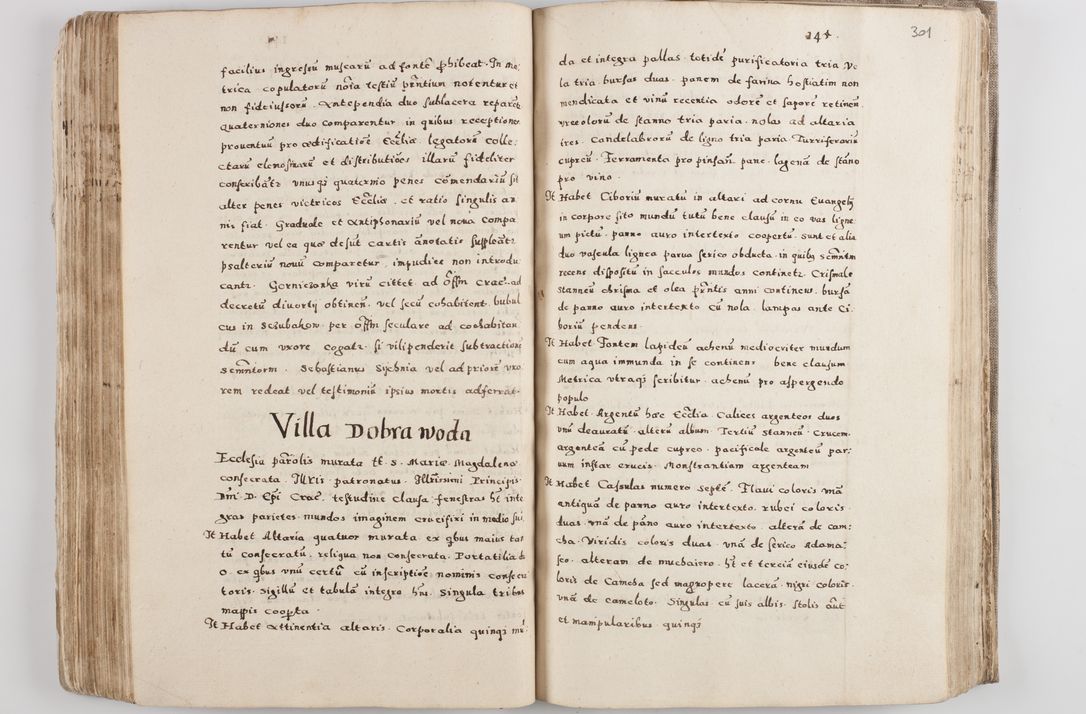 facilius ingressū muscarū ad fontē ꝓhibeat. In ma:
trica copulatorū noīa testiū prntium notentur et
non fideiussorū. Antependia duo sublacera reparētr
quaterniones duo comparentur in quibus receptiones
prouentuū pro aedificatiōe Ecclīae legatorū colle:
ctarū elemosinarū et distributiōes illarū fideliter
conscribātr unusqz quaternio penes cōmendariū sit
alter penes victricos Ecclīae. et ratio singulis an
nis fiat. Graduale et Antiphonariū vel noua compa
rentur vel ea quae desūt cartis ānotatio suppleātr
psalteriū nouū comparetur, impudice non introdu
cantr. Gornieżonka virū cittet ad offm Crac. ad
decretū diuortij obtinen. vel secū cohabitent. bubul
cus in Sczubakow per offm seculare ad cohabitan
dū cum uxore cogatr. si vilipenderit subtractione
Semntorm. Sebastianus Sychnia vel ad priorē uxo
rem redeat vel testimoniū ipsius mortis adferrat.
Villa Dobrawoda
Ecclesia parōlis murata tt. S. Mariae Magdalenae
consecrata. Juris patronatus Illrissmi Principis
Dnī D. Epi Crac. testudine clausa fenestras ht inte
gras parietes mundos imaginem crucifixi in medio sui.
It Habet Altaria quatuor murata ex qbus maius tan
tū consecratū, reliqua non consecrata. Portatilia
o ex qbus unū certū cū inscriptiōe nominis consecra
toris. sigillū et tabulā integrā hns. Singula tribus
mappis cooprta.
It Habet Attinentia altaris. Corporalia quinqz mū
241 301
da et integra pallas totidē purificatoria tria. Ve
la tria bursas duas. panem de farina hostiatim non
mendicata et vinū recentia odorē et saporē retinen
Urceolorū de stanno tria paria. nolas ad altaria
tres. Candelabrorū de ligno tria paria. Turriferariū
cupreū. Ferramenta pro pinsan. pane. lagenā de stāno
pro vino.
It Habet Ciboriū muratū in altari ad cornu Euangelij
in corpore sito mundū tutū bene clausū in eo vas ligne
um pictū. panno auro intertexto coopertū. Sunt et alia
duo vascula lignea parua serico obducta in quibz Semntm
recens dispositū in sacculos mundos continetr. Crismale
Stanneū chrisma et olea prntis anni continens. bursā
de panno auro intertexto cū nola. lampas ante Ci
boriū pendens.
It Habet Fontem lapideū achenū mediocriter mundum
cum aqua immunda in se continens bene clausum
Metrica utraqz scribitur. achenū pro aspergendo
populo
It Habet Argentū haec Ecclīa Calices argenteos duos
unū deauratū. alterū album. Tertiū stanneū. Crucem
argenteā cū pede cupreo. pacificale argenteū par:
uum instar crucis. Monstrantiam argenteam
It Habet Casulas numero septē. Flaui coloris unā
antiquā de panno auro intertexto. rubei coloris
duas. unā de pāno auro intertexto. alterā de cam:
cha. Viridis coloris duas. unā de serico Adama:
sco. alteram de muchaiero. ht et tertiā eiusdē co:
loris de Camcha sed magnopere lacerā. nigri coloris
unā de cameloto. Singulas cū suis albis. stolis
et manipularibus quinqz